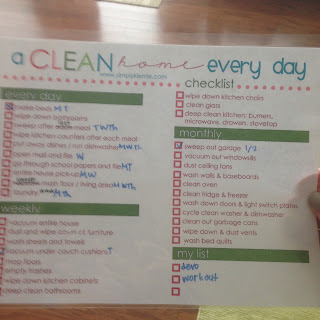 a CLEAN home every day
www.simplykierste.com
checklist
every day
make beds M T
wipe down bathrooms
sweep after last meal T W Th
wipe kitchen counters after each meal
put away dishes / run dishwasher M W Th
open mail and file W
go through school papers and file M T
entire house pick-up M W
mop floor / living area M W Th
laundry
weekly
vacuum entire house
dust and wipe down furniture
wash sheets and towels
vacuum under couch cushions T
mop floors
empty trashes
wipe down kitchen cabinets
deep clean bathrooms
wipe down kitchen chairs
clean glass
deep clean kitchen: burners,
microwave, drawers, stovetop
monthly
sweep out garage 1/2
vacuum out windowsills
dust ceiling fans
wash walls & baseboards
clean oven
clean fridge & freezer
wash down doors & light switch plates
cycle clean washer & dishwasher
clean out garbage cans
wipe down & dust vents
wash bed quilts
my list
devo
workout